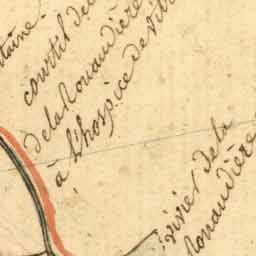 taine.
courtil de
de la Rouaudière
à l'hospice de Vit
vivier de la
Rouaudière